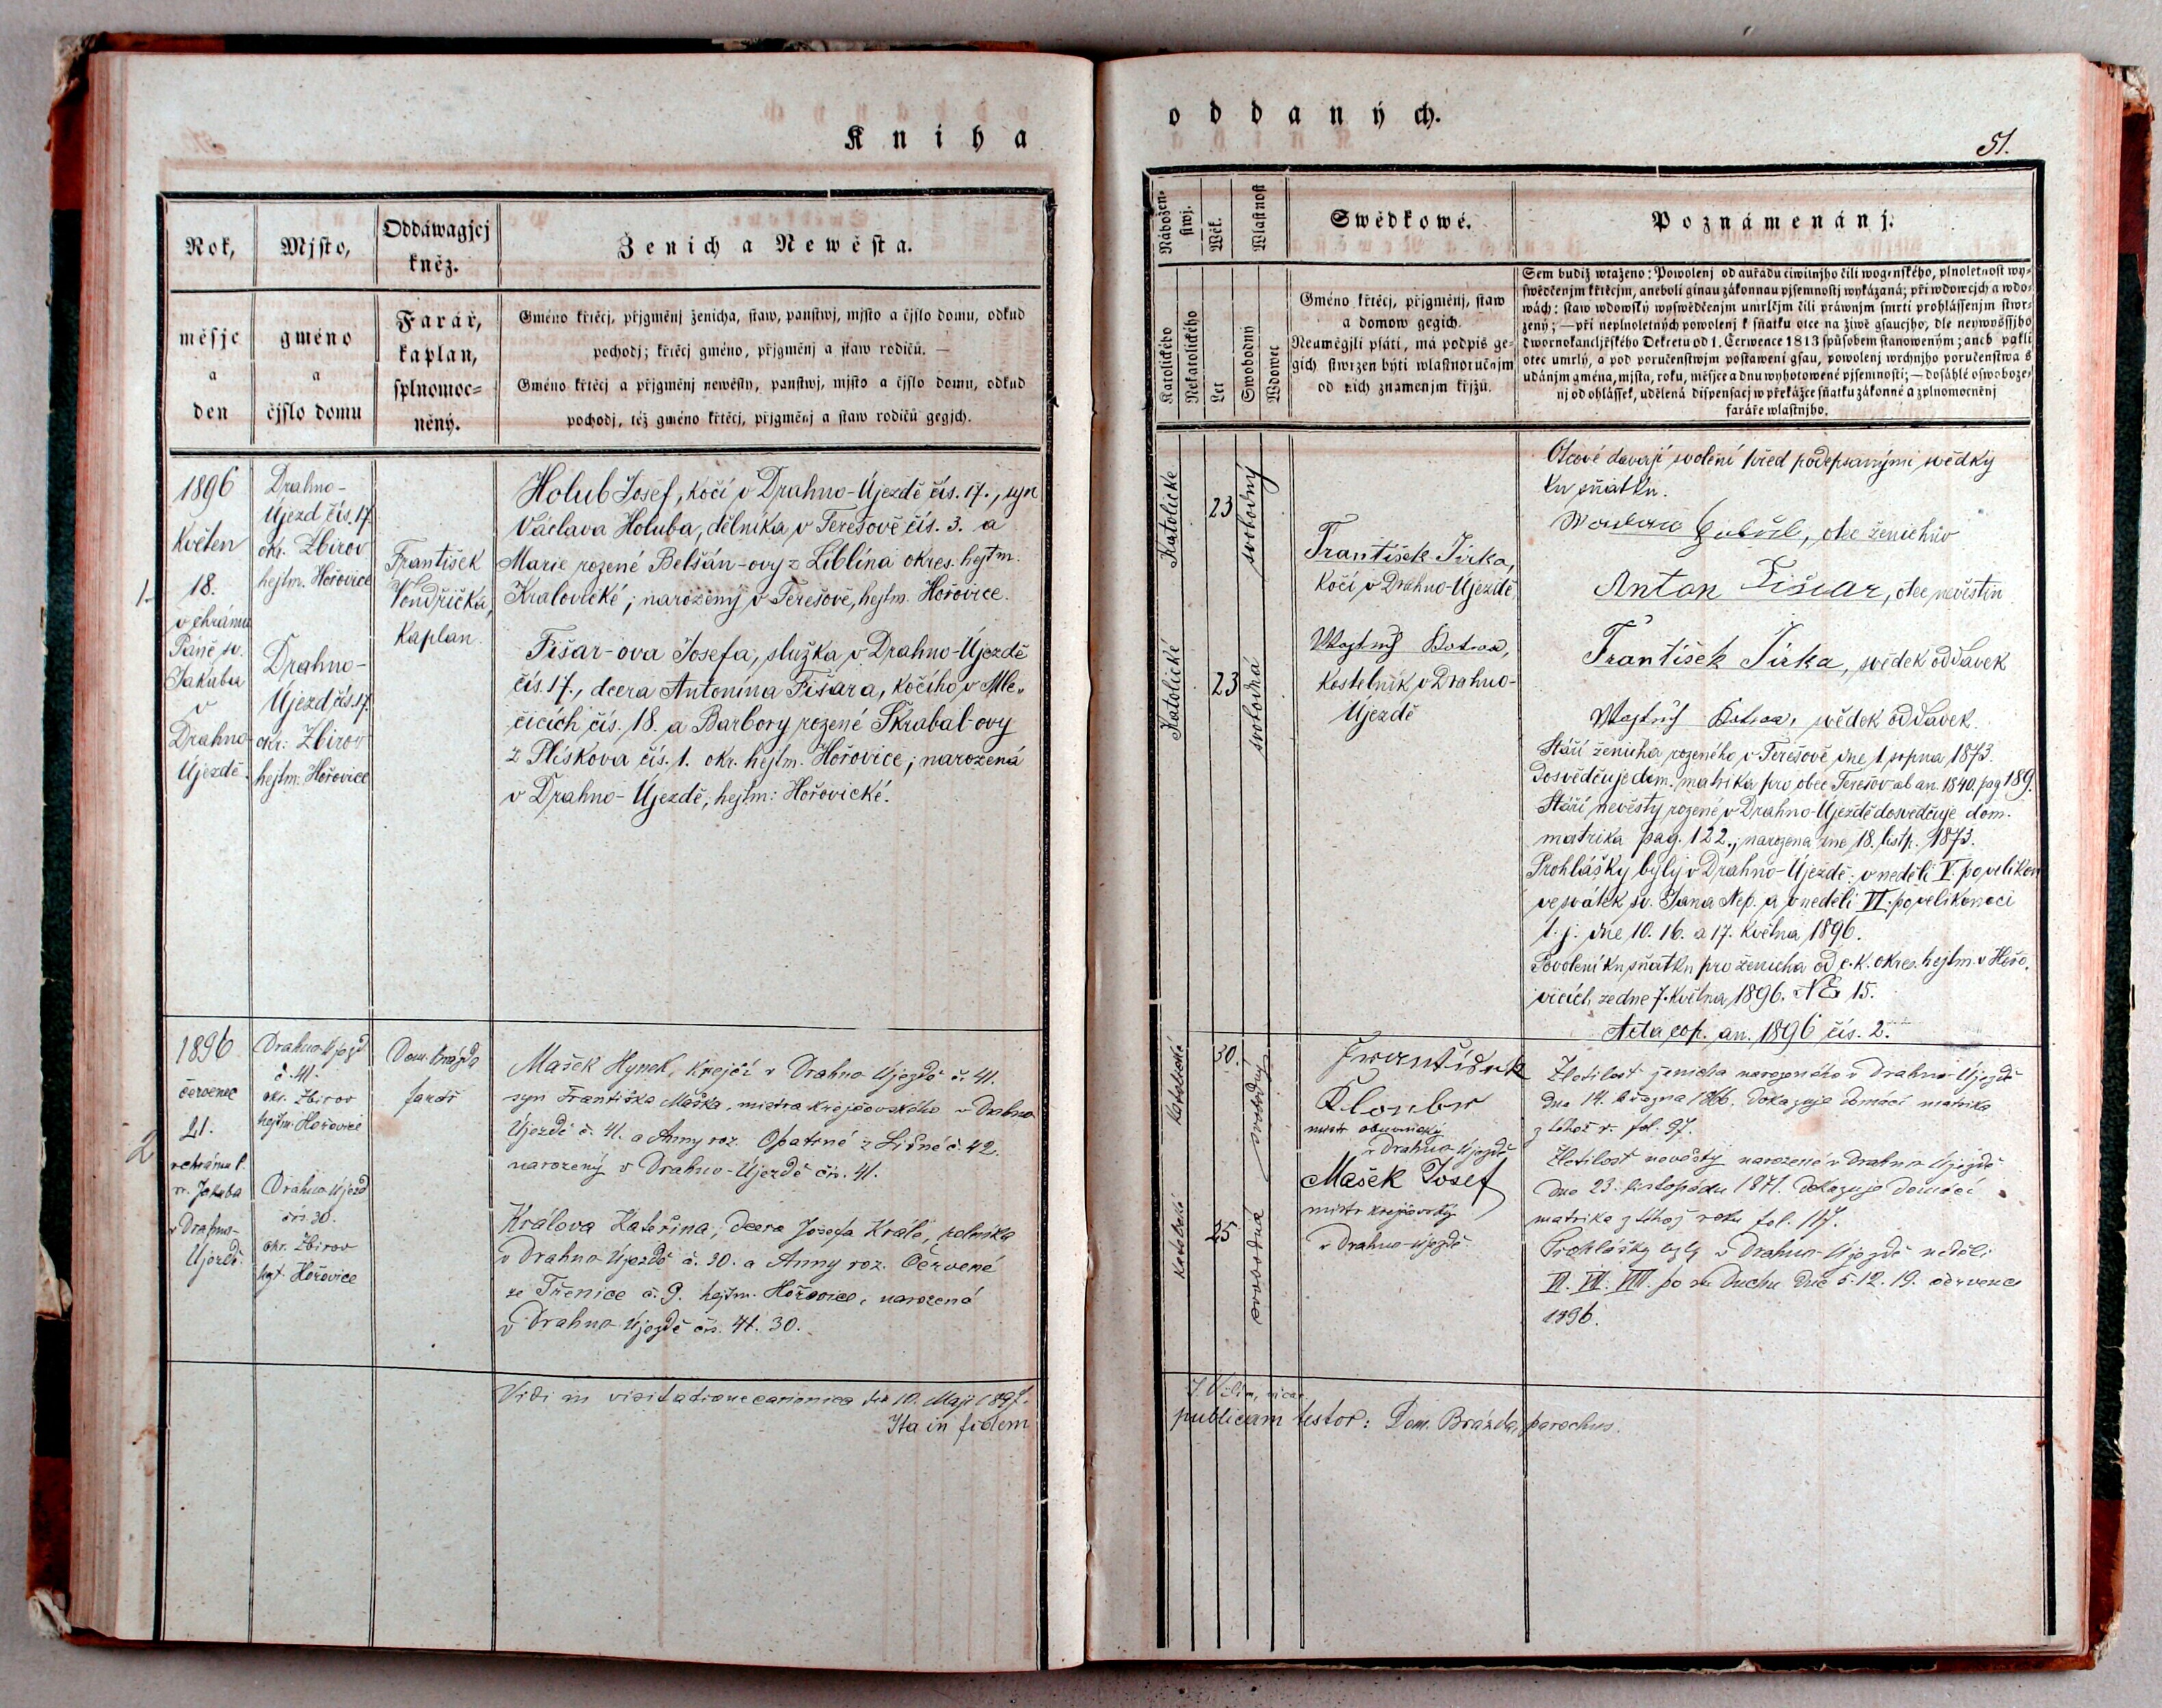 Kniha
oddaných.
51.
Rok,
měsjc
a
den
Mjsto,
gméno
a
čjslo domu
Oddáwagjcj
kněz.
Farář,
kaplan,
splnomoc=
něný.
Ženich a Newěsta.
Gméno křtěcj, přjgměnj ženicha, staw, panstwj, mjsto a čjslo domu, odkud
pochodj; křtěcj gméno, přjgměnj a staw rodičů. —
Gméno křtěcj a přjgměnj newěsty, panstwj, mjsto a čjslo domu, odkud
pochodj, též gméno křtěcj, přjgměnj a staw rodičů gegjch.
Nábožen=
stwj.
Katolického
Nekatolického
Wěk.
Let
Wlastnost
Swobodný
Wdowec
Swědkowé.
Gméno křtěcj, přjgměnj, staw
a domow gegich.
Neumějgjli psáti, má podpis ge=
gich stwrzen býti wlastnoručnjm
od nich znamenjm křjžů.
Poznámenánj.
Sem budiž wraženo: Powolenj od auřadu ciwilnjho čili wogenského, plnoletnost wy=
swědčenjm křtěcjm, aneboli ginau zákonnau pjsemnostj wykázaná; při wdowcjch a wdo=
wách: staw wdowský wyswědčenjm umrlčjm čili práwnjm smrti prohlássenjm stwr=
zený; — při neplnoletných powolenj k sňatku otce na žiwě gsaucjho, dle neywyššjho
dwornokancljřského Dekretu od 1. Čerwence 1813 spůsobem stanoweným; aneb pakli
otec umrlý, a pod poručenstwjm postaweni gsau, powolenj wrchnjho poručenstwa s
udánjm gména, mjsta, roku, měsjce a dnu wyhotowené pjsemnosti; — dosáhlé oswoboze=
nj od ohlássek, udělená dispensacj w překážce sňatku zákonné a zplnomocněnj
faráře wlastnjho.
1.
1896
Květen
18.
v chrámu
Páně sv.
Jakuba
v
Drahno-
Újezdě.
Drahno-
Újezd čís. 17.
okr. Zbirov
hejtm. Hořovice
Drahno-
Újezd čís. 17.
okr: Zbirov
hejtm: Hořovice
František
Vondřička,
Kaplan.
Holub Josef, kočí v Drahno-Újezdě čís. 17., syn
Václava Holuba, dělníka v Terešově čís. 3. a
Marie rozené Belšán-ovy z Liblína okres. hejtm.
Kralovické; narozený v Terešově, hejtm. Hořovice.
Fišar-ova Josefa, služka v Drahno-Újezdě
čís. 17., dcera Antonína Fišara, kočího v Mle-
čicích čís. 18. a Barbory rozené Škrabal-ovy
z Plískova čís. 1. okr. hejtm. Hořovice; narozená
v Drahno-Újezdě, hejtm: Hořovické.
Katolické
23
svobodný
Katolické
23
svobodná
František Jirka,
Kočí v Drahno-Újezdě
Wojtěch Kotva,
Kostelník v Drahno-
Újezdě
Otcové davají svolení před podepsanými svědky
ku sňatku.
otec ženichův
Anton Fišar, otec nevěstin
František Jirka, svědek oddavek
Wojtěch Kotva, svědek oddavek.
Stáří ženicha rozeného v Terešově dne 1. srpna 1873.
Dosvědčuje dom. matrika pro obec Terešov ab an. 1840. pag 189.
Stáří nevěsty rozené v Drahno-Újezdě dosvědčuje dom.
matrika pag. 122.; narozena dne 18. listp. 1873.
Prohlášky byly v Drahno-Újezdě: v neděli V. po velikon
ve svátek sv. Jana Nep. a v neděli VI. po velikonoci
t. j. dne 10. 16. a 17. Května 1896.
Povolení ku sňatku pro ženicha od c. k. okres. hejtm. v Hořo-
vicích ze dne 7. Května 1896. NE 15.
Acta cop. an. 1896 čís. 2.
2
1896
červenec
21.
v chrámu P.
sv. Jakuba
v Drahno-
Újezdě.
Drahno-Újezd
č. 41.
okr. Zbirov
hejtm. Hořovice
Drahno-Újezd
čís. 30.
okr. Zbirov
hejt. Hořovice
Dom. Brázda
farář
Mašek Hynek, krejčí v Drahno-Újezdě č. 41.
syn Františka Maška, mistra krejčovského v Drahno-
Újezdě č. 41. a Anny roz. Opatrné z Lišné č. 42.
narozený v Drahno-Újezdě čís. 41.
Králova Kateřina, dcera Josefa Krále, rolníka
v Drahno-Újezdě č. 30. a Anny roz. Červené
ze Třenice č. 9. hejtm. Hořovice, narozená
v Drahno-Újezdě čís. 41. 30.
Katolické
30.
svobodný
Katolické
25
svobodná
František
Klouba
mistr obuvnický
v Drahno-Újezdě
Mašek Josef
mistr krejčovský
v Drahno-Újezdě.
Zletilost ženicha narozeného v Drahno-Újezdě
dne 14. března 1866. dokazuje domácí matrika
z téhož r. fol. 97.
Zletilost nevěsty narozené v Drahno-Újezdě
dne 23. listopadu 1871. dokazuje domácí
matrika z téhož roku fol. 117.
Prohlášky byly v Drahno-Újezdě neděli
VI. VII. VIII. po sv. Duchu dne 5. 12. 19. července
1896.
Vidi in visitatione canonica die 10. Maji 1897.
J. Vilím, vicar.
Ita in fidem
publicam testor: Dom. Brázda, parochus.